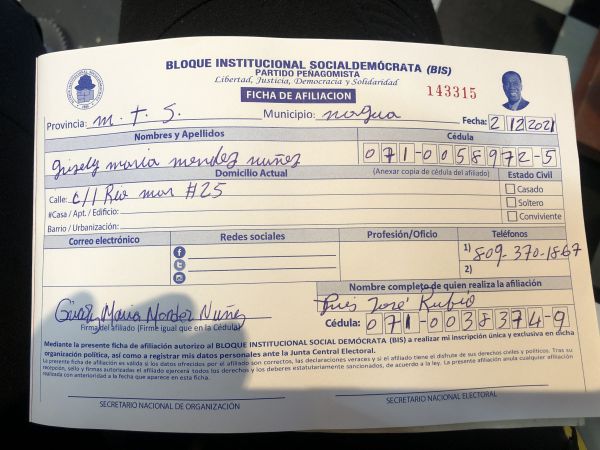 BLOQUE INSTITUCIONAL SOCIALDEMÓCRATA (BIS)
PARTIDO PEÑAGOMISTA
Libertad, Justicia, Democracia y Solidaridad
FICHA DE AFILIACION
143315
Provincia: M.T.S. Municipio: nagua Fecha: 2 12 2021
Nombres y Apellidos Cédula
Gisely maria mendez nuñez 071-0058972-5
Domicilio Actual (Anexar copia de cédula del afiliado) Estado Civil
Calle: c/ Rio mar #25 Casado
#Casa / Apt. / Edificio: Soltero
Barrio / Urbanización: Conviviente
Correo electrónico Redes sociales Profesión/Oficio Teléfonos
1) 809-370-1867
2)
Nombre completo de quien realiza la afiliación
José Rubio
Maria Nuñez
Firma del afiliado (Firme igual que en la Cédula) Cédula: 071-0038374-9
Mediante la presente ficha de afiliación autorizo al BLOQUE INSTITUCIONAL SOCIAL DEMÓCRATA (BIS) a realizar mi inscripción única y exclusiva en dicha
organización política, así como a registrar mis datos personales ante la Junta Central Electoral.
La presente ficha de afiliación es válida si los datos ofrecidos por el afiliado son correctos, las declaraciones veraces y si el afiliado tiene el disfrute de sus derechos civiles y políticos. Tras su
recepción, sello y firmas autorizadas el afiliado ejercerá todos los derechos y deberes estatutariamente sancionados, de acuerdo a la ley. La presente afiliación anula cualquier afiliación
realizada con anterioridad a la fecha que aparece en esta ficha.
SECRETARIO NACIONAL DE ORGANIZACIÓN SECRETARIO NACIONAL ELECTORAL